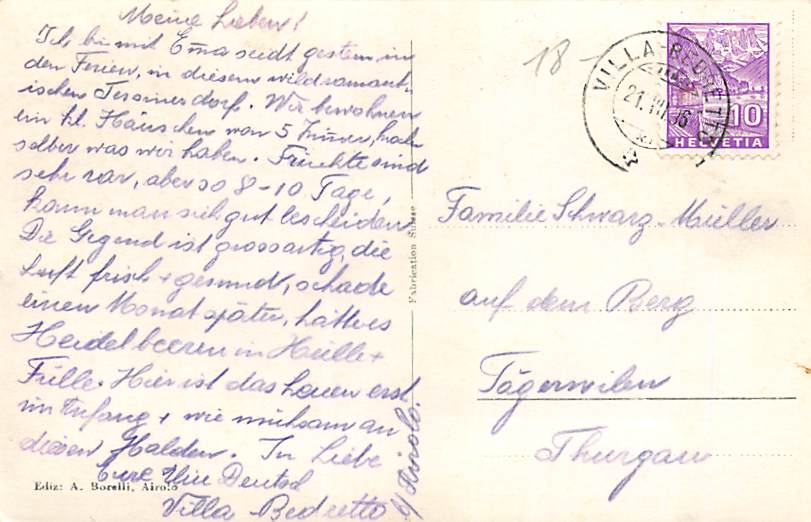 Meine Lieben!
Ich bin mit Emma seidt gestern in
den Ferien, in diesem wildromant-
ischen Tessinerdorf. Wir bewohnen
ein kl. Häuschen von 5 Zimmer, koche
selber was wir haben. Früchte sind
sehr rar, aber so 8-10 Tage,
kann man sich gut bescheiden.
Die Gegend ist grossartig, die
Luft frisch + gesund, schade
einen Monat später, hätte es
Heidelbeeren in Hülle +
Fülle. Hier ist das heuen erst
im Anfang + wie mühsam an
diesen Halden. In Liebe
Eure Deutsch
Villa Bedretto
b/ Airolo.
Ediz: A. Borelli, Airolo
Fabrication Suisse
18-
VILLA-BEDRETTO
21.VII.36
10
HELVETIA
Familie Schwarz-Müller
auf dem Berg
Tägerwilen
Thurgau